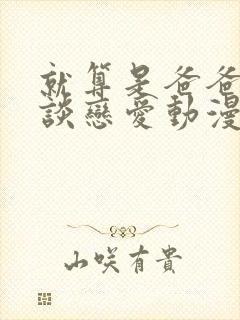 就算是爸爸
談戀愛動漫
山咲有貴